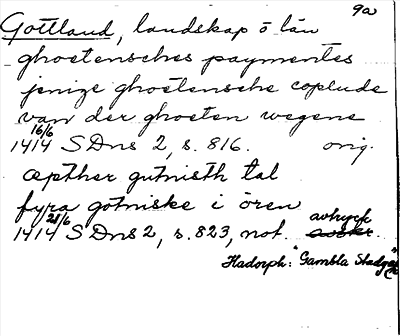 9a
Gottland, landskap o län
ghoetensches paymentes
jenige ghoetensche coplude
van der ghoeten wegene
1414 16/6 SDns 2, s. 816. orig.
æpther gutnisth tal
fyra gotniske i ören
1414 21/6 SDns 2, s. 823, not. avtryck
Hadorph: "Gambla Stadgar"